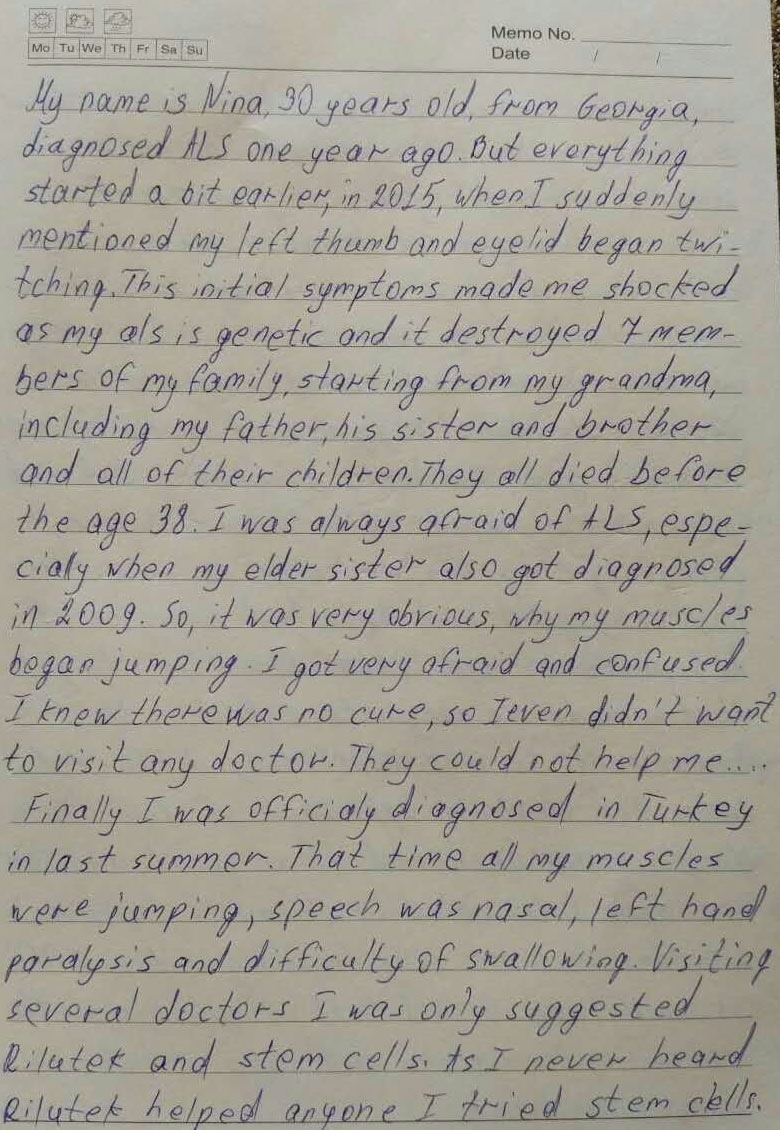 Memo No.
Mo Tu We Th Fr Sa Su
Date / /
My name is Nina, 30 years old, from Georgia,
diagnosed ALS one year ago. But everything
started a bit earlier, in 2015, when I suddenly
mentioned my left thumb and eyelid began twi-
tching. This initial symptoms made me shocked
as my als is genetic and it destroyed 7 mem-
bers of my family, starting from my grandma,
including my father, his sister and brother
and all of their children. They all died before
the age 38. I was always afraid of ALS, espe-
cialy when my elder sister also got diagnosed
in 2009. So, it was very obvious, why my muscles
began jumping. I got very afraid and confused.
I knew there was no cure, so I even didn't want
to visit any doctor. They could not help me....
Finally I was officialy diagnosed in Turkey
in last summer. That time all my muscles
were jumping, speech was nasal, left hand
paralysis and difficulty of swallowing. Visiting
several doctors I was only suggested
Rilutek and stem cells. As I never heard
Rilutek helped anyone I tried stem cells.